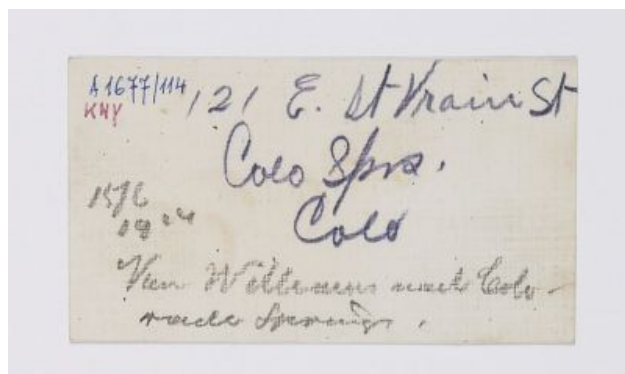 A1677/114
KWY
121 E. St Vrain St
Colo Sprs.
Colo
15/6
Van Williams nach Colo-
rado Springs.